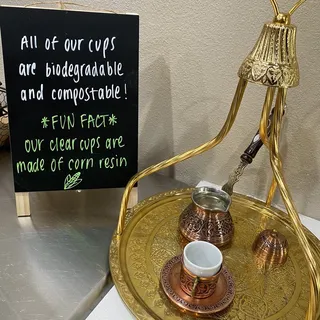 All of our cups
are biodegradable
and compostable!
*FUN FACT*
our clear cups are
made of corn resin